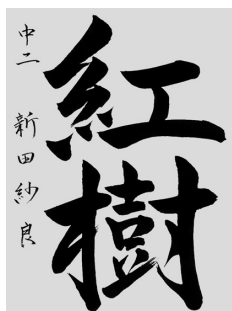 紅樹
中二 新田紗良